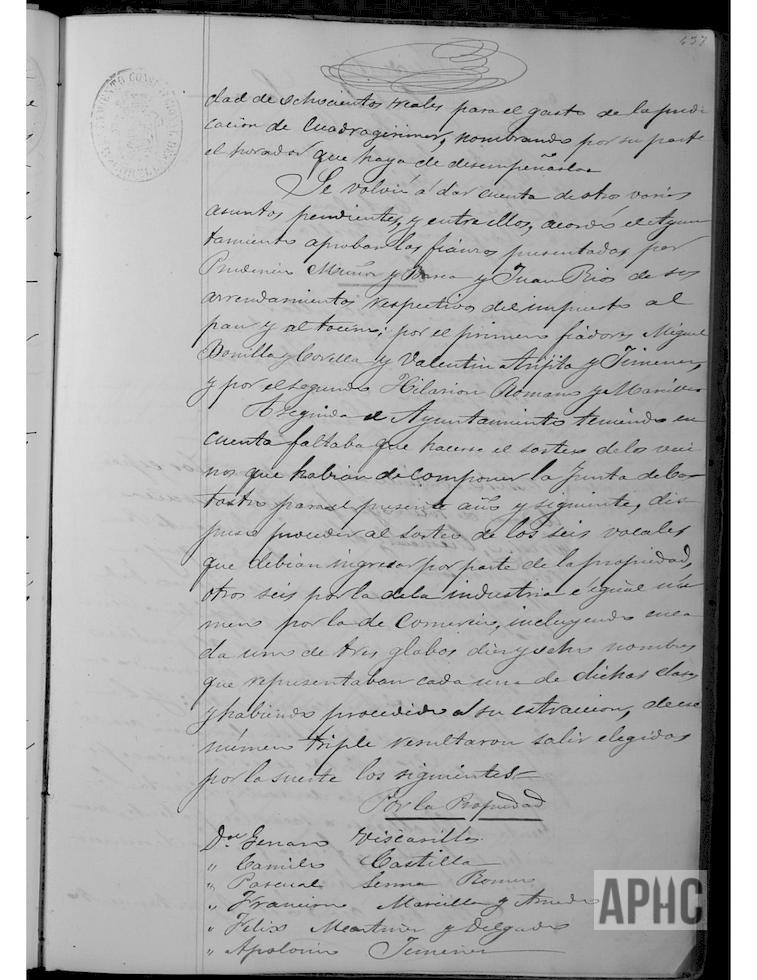 437
AYUNTAMIENTO CONSTITUCIONAL
dad de ochocientos reales para el gasto de la predi
cacion de Cuadragesimar, nombrando por su parte
el horador que haya de desempeñarla
Se volvió á dar cuenta de otros varios
asuntos pendientes, y entre ellos, acordó el Ayun
tamiento aprobar las fianzas presentadas por
Prudencio Muñoz y Barea y Juan Rios de sus
arrendamientos respectivos del impuesto al
pan y al tocino; por el primero fiadores Miguel
Bonilla y Corella y Valentin Arpita y Jimenez,
y por el segundo Hilarion Romano y Marcilla
A seguida el Ayuntamiento teniendo en
cuenta faltaba que hacerse el sorteo de los veci
nos que habian de componer la Junta de Ca
tastro para el presente año y siguiente, dis
puso proceder al sorteo de los seis vocales
que debian ingresar por parte de la propiedad,
otros seis por la de la industria é igual nú
mero por la de Comercio, incluyendo en ca
da uno de tres globos diez y ocho nombres
que representaban cada una de dichas clases
y habiendo procedido á su estraccion, de ese
número triple resultaron salir elegidos
por la suerte los siguientes=
Por la Propiedad
Dn Genaro Viscasillas
" Camilo Castilla
" Pascual Serma Romeo
" Francisco Marcilla y
" Felix Martinez y Delgado
" Apolonio Jimenez
APHC